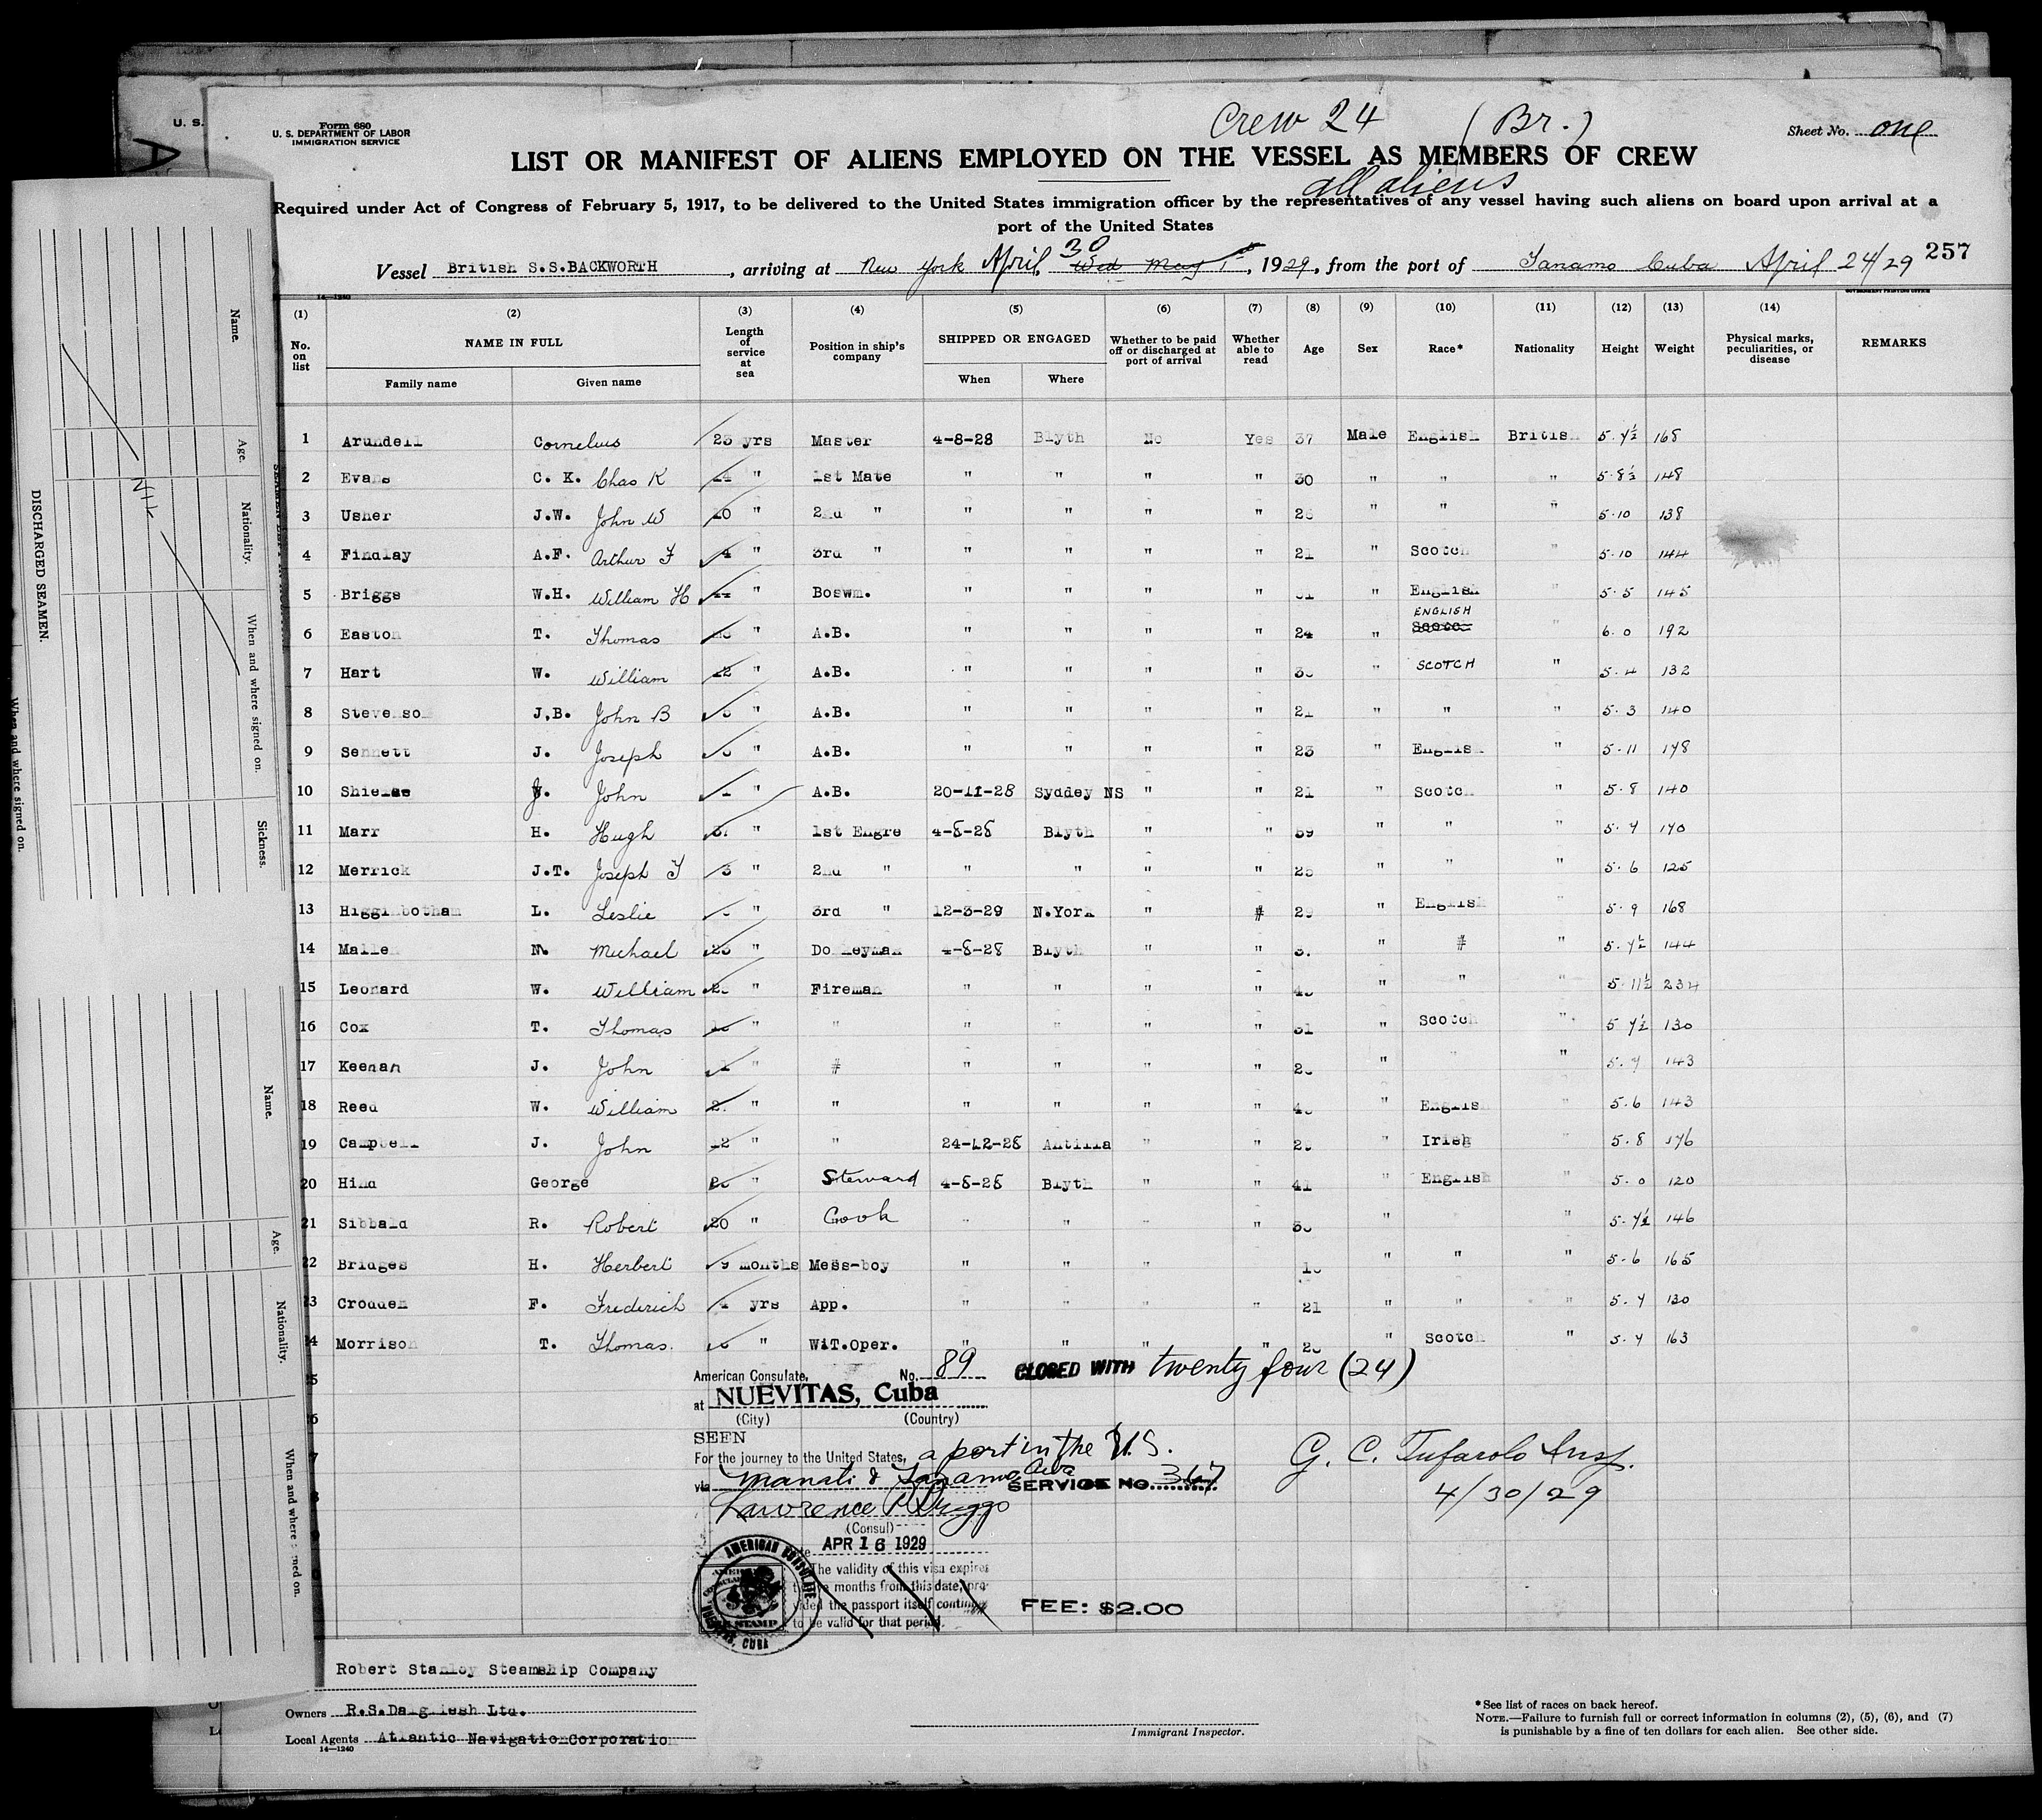 Crew 24 (Br.)
Form 680
U. S. DEPARTMENT OF LABOR
IMMIGRATION SERVICE
Sheet No. one
LIST OR MANIFEST OF ALIENS EMPLOYED ON THE VESSEL AS MEMBERS OF CREW
all aliens
Required under Act of Congress of February 5, 1917, to be delivered to the United States immigration officer by the representatives of any vessel having such aliens on board upon arrival at a
port of the United States
Vessel British S.S.BACKWORTH, arriving at New York April 30 Wed May 1st, 1929, from the port of Tanamo Cuba April 24/29 257
14—1240 GOVERNMENT PRINTING OFFICE
(1) (2) (3) (4) (5) (6) (7) (8) (9) (10) (11) (12) (13) (14)
No. on list NAME IN FULL Length of service at sea Position in ship's company SHIPPED OR ENGAGED Whether to be paid off or discharged at port of arrival Whether able to read Age Sex Race* Nationality Height Weight Physical marks, peculiarities, or disease REMARKS
Family name Given name When Where
1 Arundell Cornelius 23 yrs Master 4-8-28 Blyth No Yes 37 Male English British 5.7½ 168
2 Evans C. K. Chas K 14 " 1st Mate " " " " 30 " " " 5.8½ 148
3 Usher J.W. John W 10 " 2nd " " " " " " " " 5.10 138
4 Findlay A.F. Arthur F 4 " 3rd " " " " " 21 " Scotch " 5.10 144
5 Briggs W.H. William H " Boswm. " " " " " English 5.5 145
6 Easton T. Thomas " A.B. " " " " 24 " ENGLISH Scotch " 6.0 192
7 Hart W. William 12 " A.B. " " " " " SCOTCH " 5.4 132
8 Stevenson J.B. John B " A.B. " " " " 21 " " " 5.3 140
9 Sennett J. Joseph " A.B. " " " " 23 " English " 5.11 178
10 J. John 1 " A.B. 20-11-28 Syddey NS " " 21 " Scotch " 5.8 140
11 Marr H. Hugh " 1st Engre 4-8-28 Blyth " " 59 " " " 5.7 170
12 Merrick J.T. Joseph T 3 " 2nd " " " " " " " " 5.6 125
13 Higginbotham L. Leslie " 3rd " 12-3-29 N.York " # 29 " English " 5.9 168
14 Michael " Donkeyman 4-8-28 Blyth " " " # " 5.7½ 144
15 Leonard W. William " Fireman " " " " " " " 5.11½ 234
16 Cox T. Thomas " " " " " " 31 " Scotch " 5 7½ 130
17 Keenan J. John 1 " # " " " " " " " 5.7 143
18 Reed W. William " " " " " " " English " 5.6 143
19 Campbell J. John 12 " " 24-12-28 Antilla " " " Irish " 5.8 176
20 Hind George " Steward 4-8-28 Blyth " " 41 " English 5.0 120
21 Sibbald R. Robert 20 " Cook " " " " " " " 5.7½ 146
22 Bridges H. Herbert 9 months Mess-boy " " " " " " 5.6 165
23 Frederich yrs App. " " " " 21 " " " 5.7 130
24 Morrison T. Thomas. " WiT.Oper. " " " " " Scotch " 5.7 163
American Consulate, No. 89 CLOSED WITH twenty four (24)
at NUEVITAS, Cuba
(City) (Country)
SEEN
For the journey to the United States, a port in the U.S.
via Manati & Tanamo Cuba SERVICE NO. 367
Lawrence P. Briggs
(Consul)
APR 16 1929
The validity of this visa expires
twelve months from this date, pro-
vided the passport itself continues
to be valid for that period.
FEE: $2.00
AMERICAN CONSULATE
NUEVITAS, CUBA
G. C. Tufarolo Insp.
4/30/29
Robert Stanley Steamship Company
Owners R.S.Dalgliesh Ltd.
Local Agents Atlantic Navigation Corporation
14—1240
Immigrant Inspector.
*See list of races on back hereof.
NOTE.—Failure to furnish full or correct information in columns (2), (5), (6), and (7)
is punishable by a fine of ten dollars for each alien. See other side.
U. S.
DISCHARGED SEAMEN.
Name. Age. Nationality. When and where signed on. Sickness.
Nil
When and where signed on.
Name. Age. Nationality. When and where signed on.